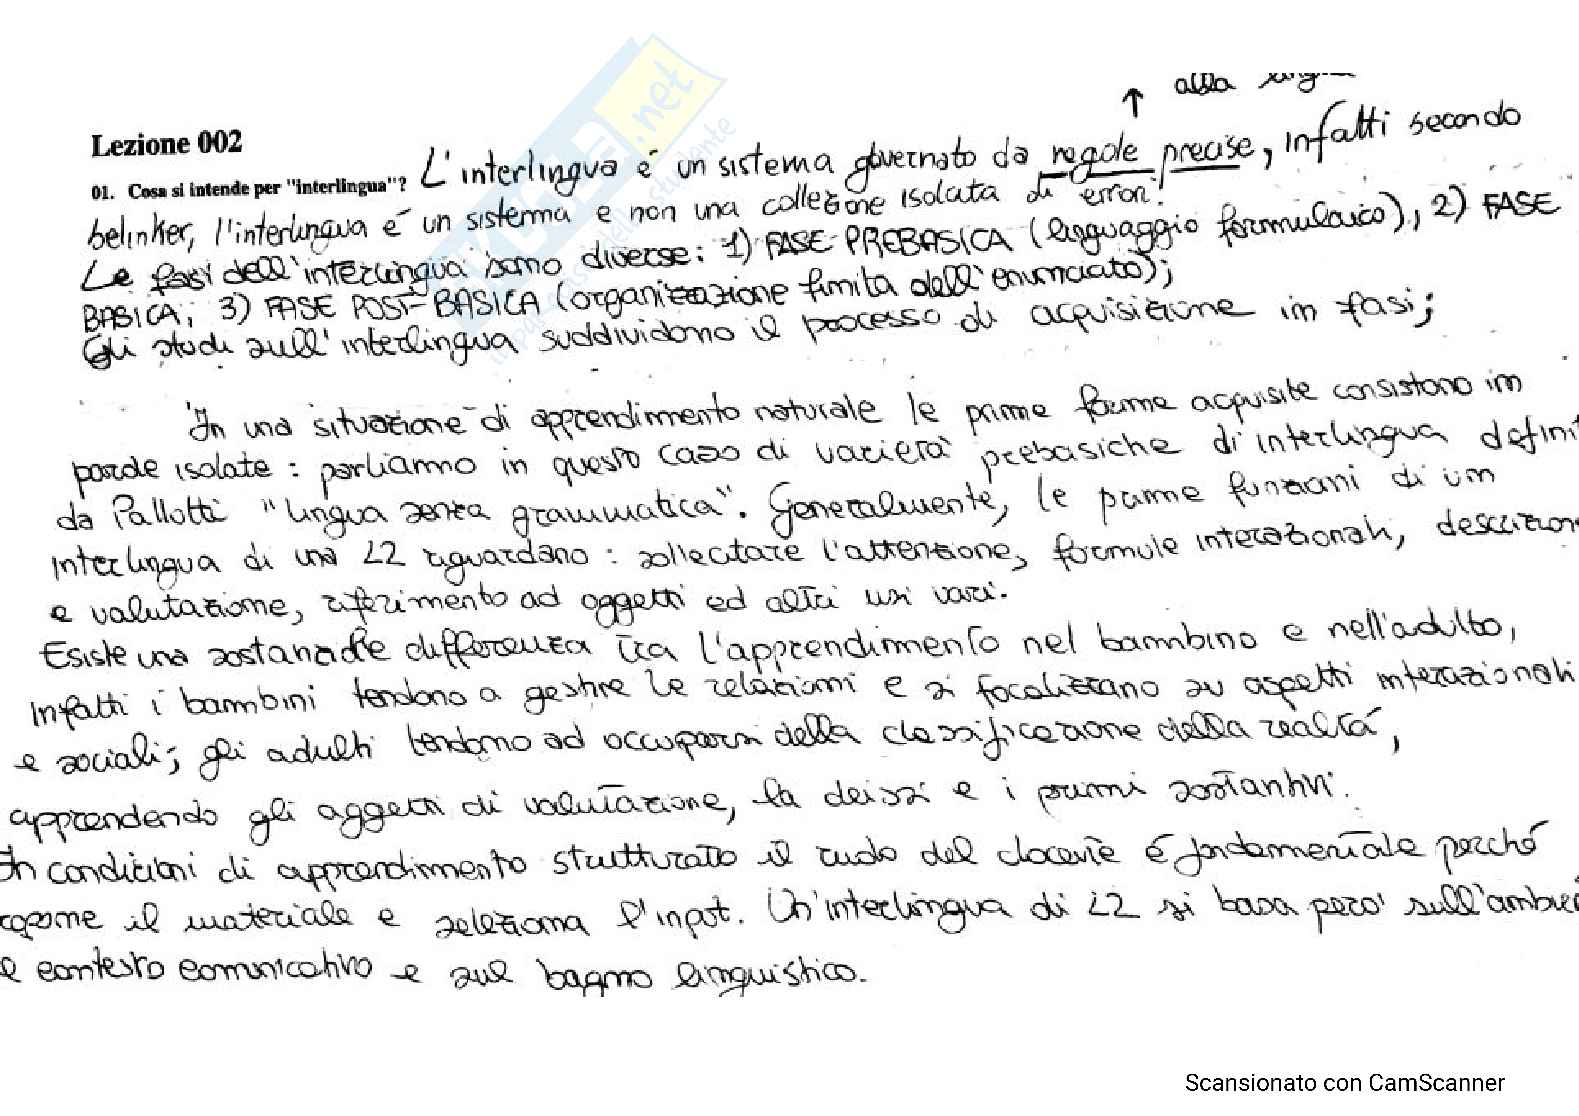 alla
↑
Lezione 002
01. Cosa si intende per "interlingua"? L'interlingua é un sistema governato da regole precise, infatti secondo
belinker, l'interlingua é un sistema e non una collezione isolata di errori.
Le fasi dell'interlingua sono diverse: 1) FASE PREBASICA (linguaggio formulaico), 2) FASE
BASICA; 3) FASE POST-BASICA (organizzazione finita dell'enunciato);
Gli studi sull'interlingua suddividono il processo di acquisizione in fasi;
In una situazione di apprendimento naturale le prime forme acquisite consistono in
parole isolate: parliamo in questo caso di varietà prebasiche di interlingua definit
da Pallotti "lingua senza grammatica". Generalmente, le prime funzioni di un
interlingua di una L2 riguardano: sollecitare l'attenzione, formule interazionali, descrizion
e valutazione, riferimento ad oggetti ed altri usi vari.
Esiste una sostanziale differenza tra l'apprendimento nel bambino e nell'adulto,
infatti i bambini tendono a gestire le relazioni e si focalizzano su aspetti interazionali
e sociali; gli adulti tendono ad occuparsi della classificazione della realtá,
apprendendo gli aggettivi di valutazione, la deissi e i primi sostantivi.
In condizioni di apprendimento strutturato il ruolo del docente é fondamentale perché
ropone il materiale e seleziona l'input. Un'interlingua di L2 si basa pero' sull'ambien
e contesto comunicativo e sul bagno linguistico.
Scansionato con CamScanner